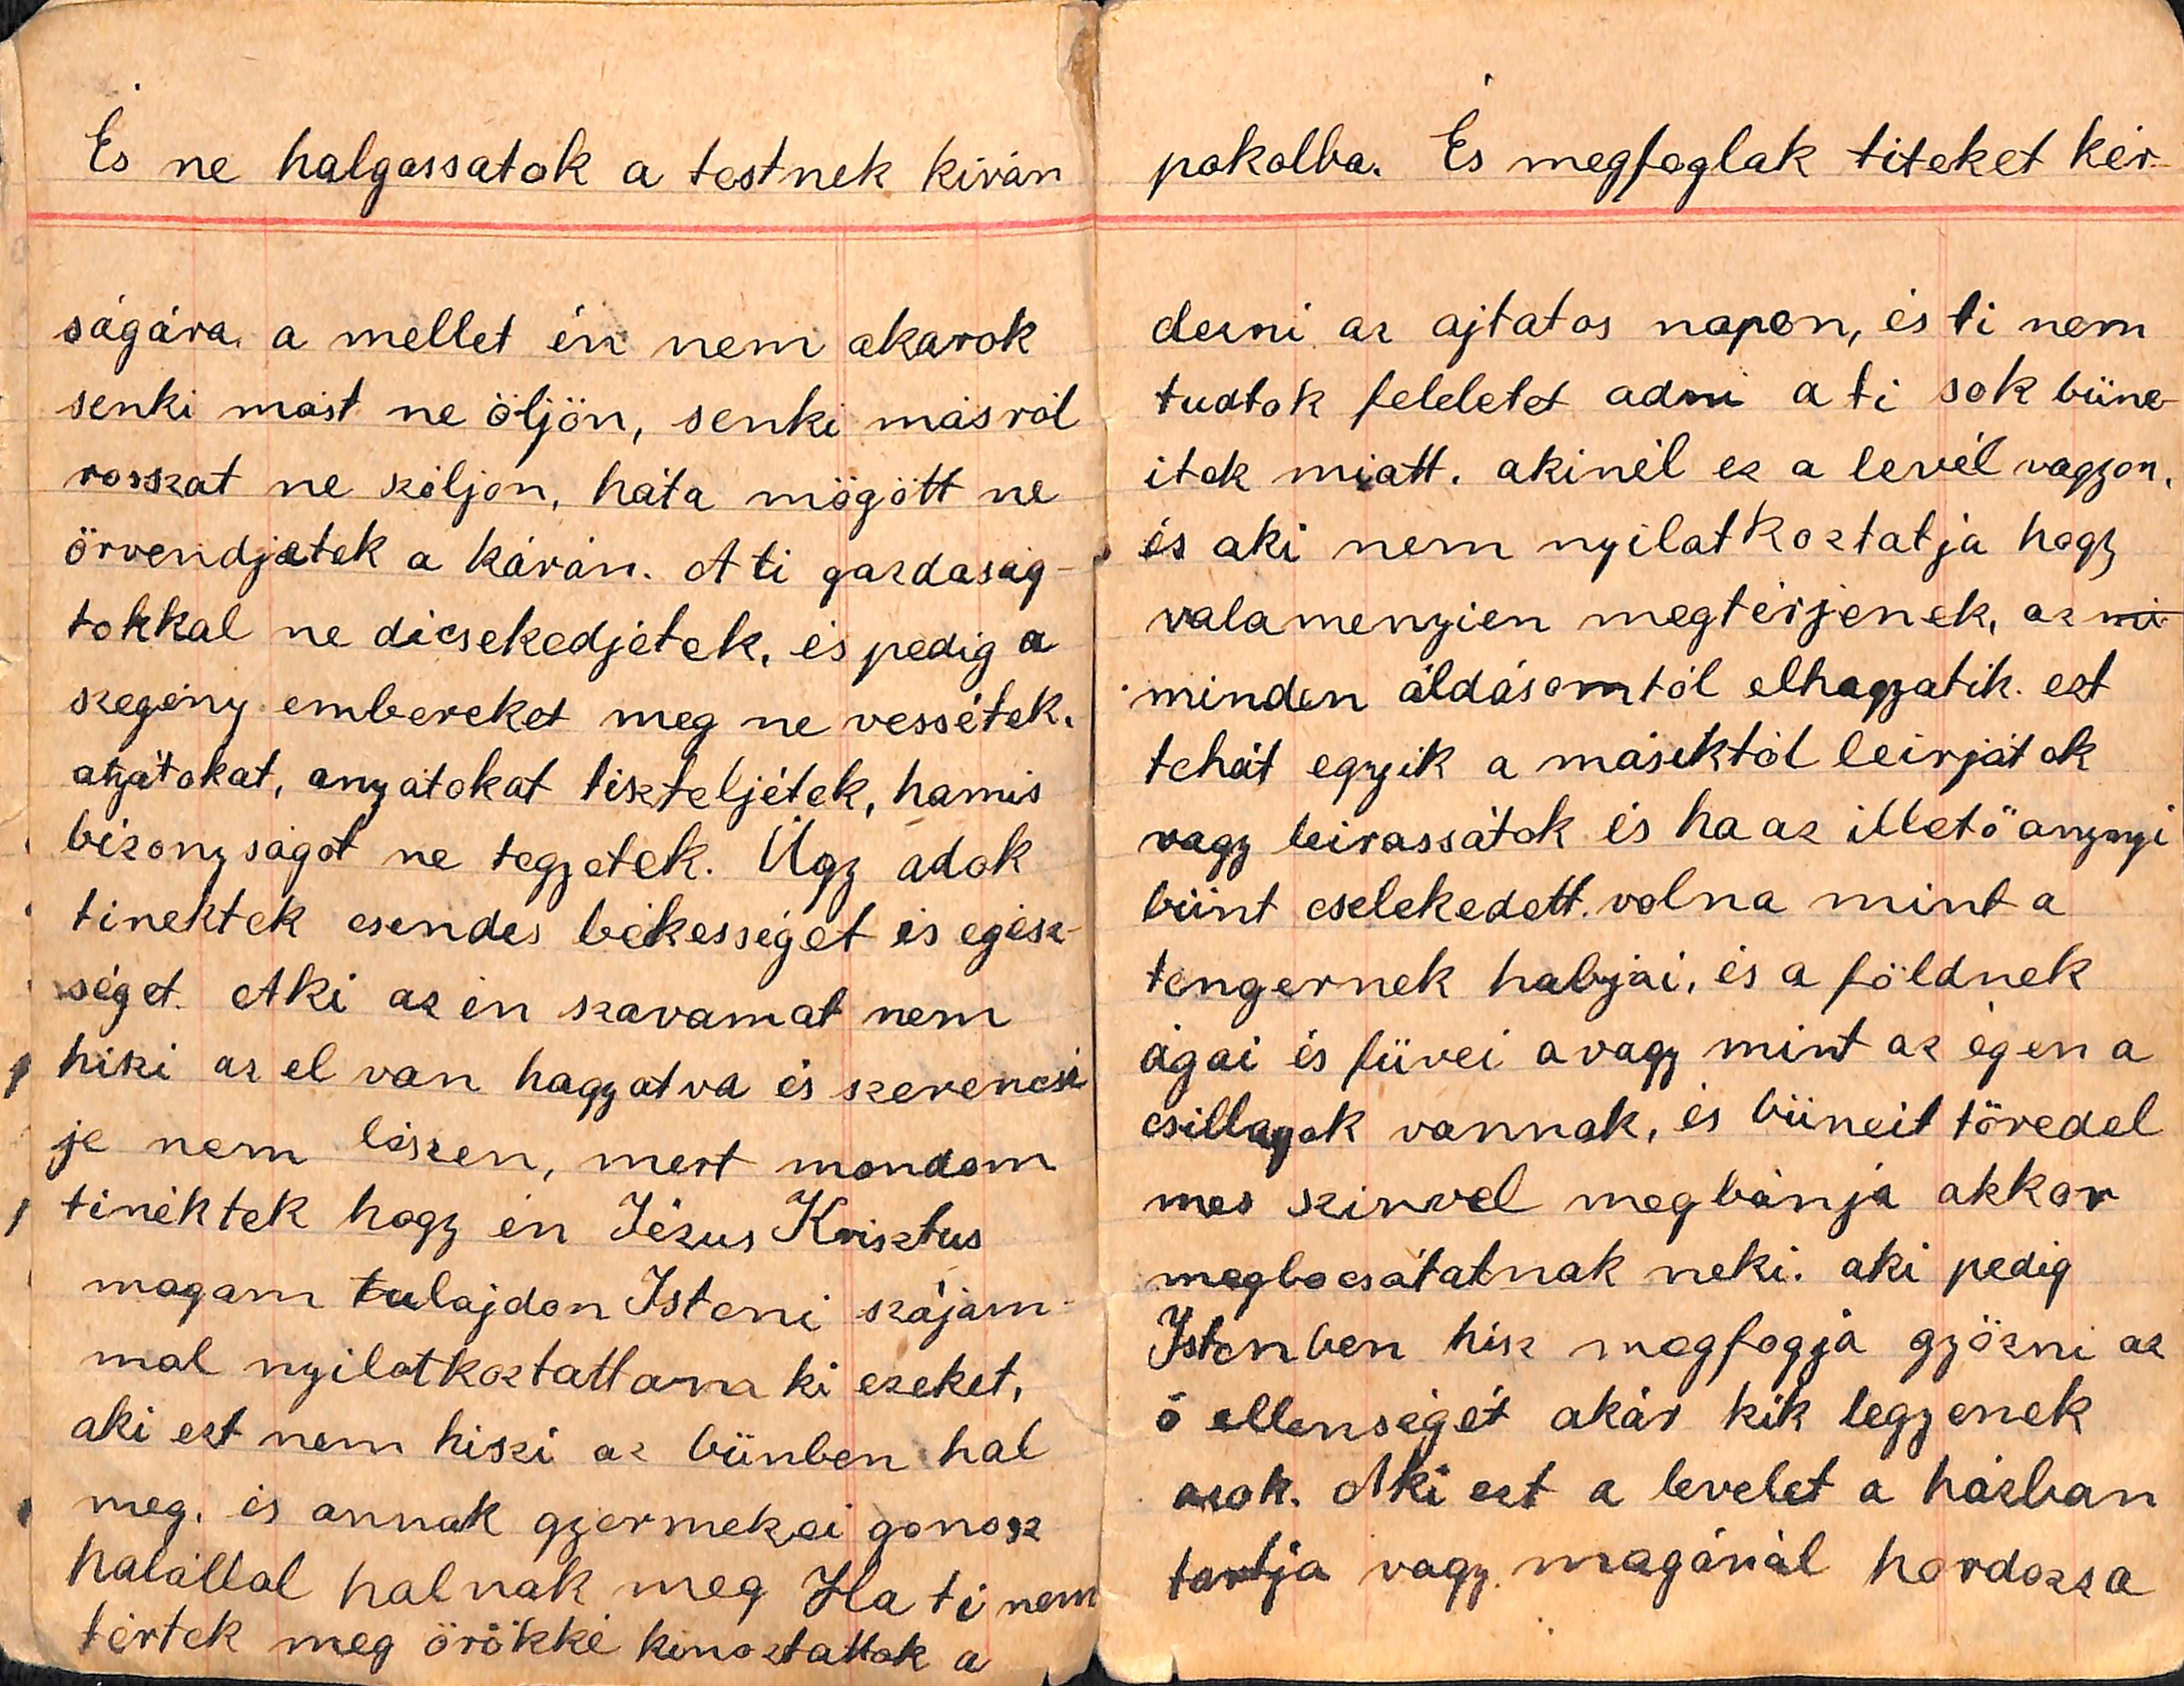 És ne halgassatok a testnek kiván
ságára. a mellet én nem akarok
senki mást ne öljön, senki másról
rosszat ne szóljon, háta mögött ne
örvendjetek a kárán. A ti gazdaság-
tokkal ne dicsekedjétek, és pedig a
szegény embereket meg ne vessétek.
atyátokat, anyátokat tiszteljétek, hamis
bizonyságot ne tegyetek. Úgy adok
tinektek csendes békességet és egész-
séget. Aki az én szavamat nem
hiszi az el van hagyatva és szerencsé
je nem lészen, mert mondom
tinéktek hogy én Jézus Krisztus
magam tulajdon Isteni szájam-
mal nyilatkoztattam ki ezeket,
aki ezt nem hiszi az bünben hal
meg. és annak gyermekei gonosz
halállal halnak meg Ha ti nem
tértek meg örökké kinoztattok a
pokolba. És megfoglak titeket kér-
dezni az ajtatos napon, és ti nem
tudtok feleletet adni a ti sok büne-
itek miatt. akinél ez a levél vagyon,
és aki nem nyilatkoztatja hogy
valamenyien megtérjenek, az mi
minden áldásomtól elhagyatik. ezt
tehát egyik a másiktól leirjátok
vagy leirassátok és ha az illető anynyi
bünt cselekedett volna mint a
tengernek habjai, és a földnek
ágai és füvei avagy mint az égen a
csillagok vannak, és büneit töredel
mes szivvel megbánja akkor
megbocsátatnak neki. aki pedig
Istenben hisz megfogja győzni az
ő ellenségét akár kik legyenek
azok. Aki ezt a levelet a házban
tartja vagy magánál hordozza